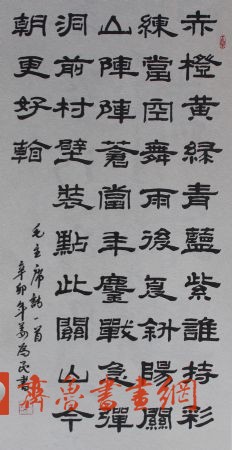 赤橙黄緑青藍紫誰持彩
練當空舞雨後复斜陽關
山陣陣蒼當年鏖戰急彈
洞前村壁裝點此關山今
朝更好
毛主席詞一首
辛卯年姜為民書
齊魯書畫網